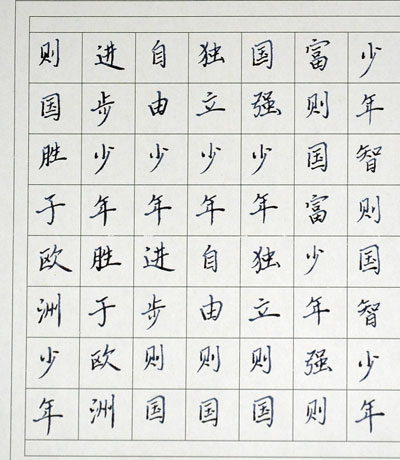 少年智则国智少年
富则国富少年强则
国强少年独立则国
独立少年自由则国
自由少年进步则国
进步少年胜于欧洲
则国胜于欧洲少年